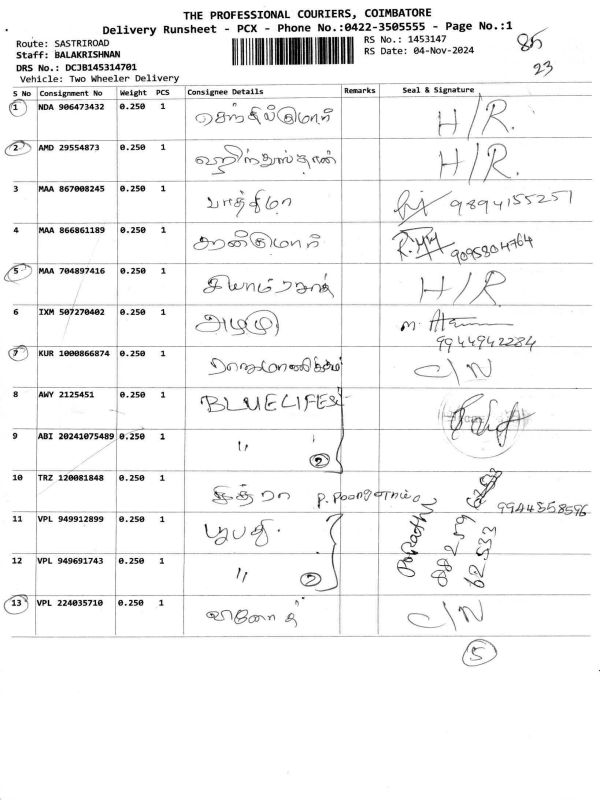 THE PROFESSIONAL COURIERS, COIMBATORE
Delivery Runsheet - PCX - Phone No.:0422-3505555 - Page No.:1
Route: SASTRIROAD
RS No.: 1453147
85
Staff: BALAKRISHNAN
RS Date: 04-Nov-2024
23
DRS No.: DCJB145314701
Vehicle: Two Wheeler Delivery
S No Consignment No Weight PCS Consignee Details Remarks Seal & Signature
1 NDA 906473432 0.250 1 செந்தில்குமார் H/R.
2 AMD 29554873 0.250 1 ஹிந்துஸ்தான் H/R.
3 MAA 867008245 0.250 1 பாத்திமா 9894155251
4 MAA 866861189 0.250 1 அருண்குமார் 9095804764
5 MAA 704897416 0.250 1 H/R.
6 IXM 507270402 0.250 1 அழகு 9944942284
7 KUR 1000866874 0.250 1 ராஜமாணிக்கம் C/N
8 AWY 2125451 0.250 1 BLUELIFE
9 ABI 20241075489 0.250 1 " 2
10 TRZ 120081848 0.250 1 சித்ரா 9944558596
11 VPL 949912899 0.250 1 பூபதி. 88259 62533
12 VPL 949691743 0.250 1 " 2
13 VPL 224035710 0.250 1 வினோத் C/N
5